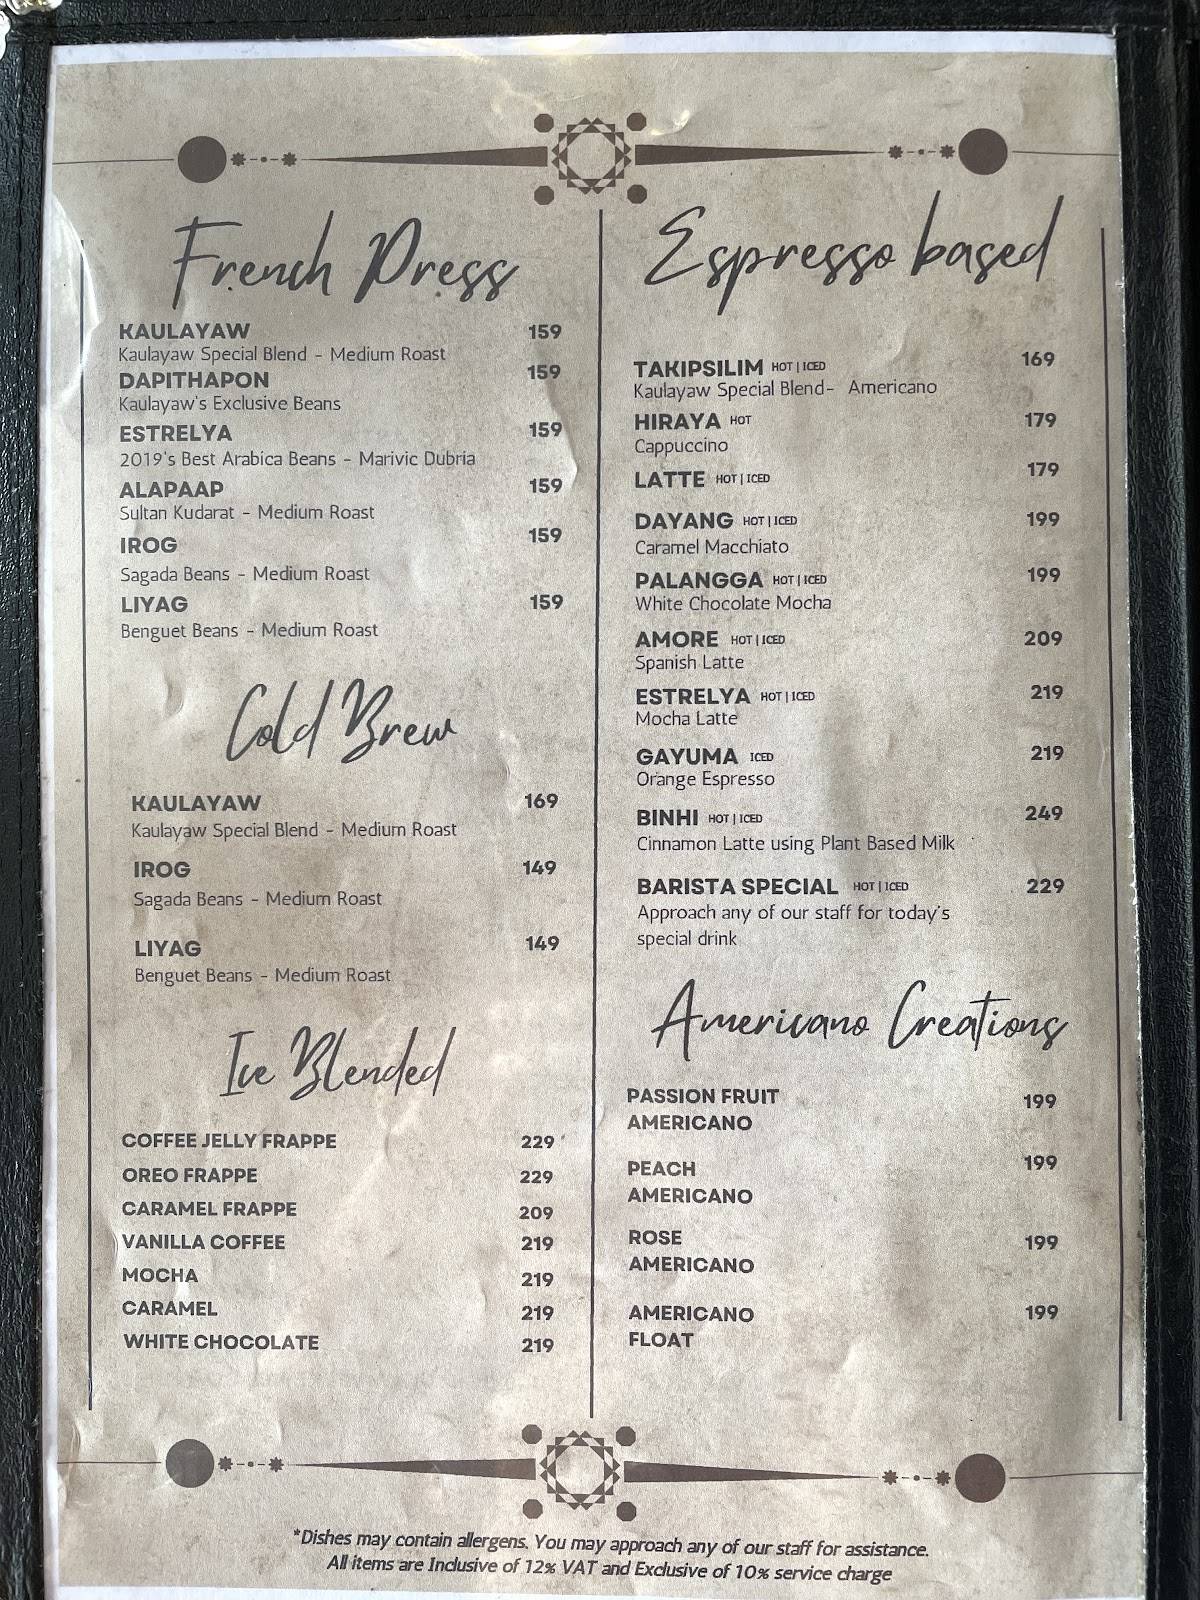 French Press
KAULAYAW 159
Kaulayaw Special Blend - Medium Roast
DAPITHAPON 159
Kaulayaw's Exclusive Beans
ESTRELYA 159
2019's Best Arabica Beans - Marivic Dubria
ALAPAAP 159
Sultan Kudarat - Medium Roast
IROG 159
Sagada Beans - Medium Roast
LIYAG 159
Benguet Beans - Medium Roast
Cold Brew
KAULAYAW 169
Kaulayaw Special Blend - Medium Roast
IROG 149
Sagada Beans - Medium Roast
LIYAG 149
Benguet Beans - Medium Roast
Ice Blended
COFFEE JELLY FRAPPE 229
OREO FRAPPE 229
CARAMEL FRAPPE 209
VANILLA COFFEE 219
MOCHA 219
CARAMEL 219
WHITE CHOCOLATE 219
Espresso based
TAKIPSILIM HOT | ICED 169
Kaulayaw Special Blend- Americano
HIRAYA HOT 179
Cappuccino
LATTE HOT | ICED 179
DAYANG HOT | ICED 199
Caramel Macchiato
PALANGGA HOT | ICED 199
White Chocolate Mocha
AMORE HOT | ICED 209
Spanish Latte
ESTRELYA HOT | ICED 219
Mocha Latte
GAYUMA ICED 219
Orange Espresso
BINHI HOT | ICED 249
Cinnamon Latte using Plant Based Milk
BARISTA SPECIAL HOT | ICED 229
Approach any of our staff for today's
special drink
Americano Creations
PASSION FRUIT 199
AMERICANO
PEACH 199
AMERICANO
ROSE 199
AMERICANO
AMERICANO 199
FLOAT
*Dishes may contain allergens. You may approach any of our staff for assistance.
All items are Inclusive of 12% VAT and Exclusive of 10% service charge